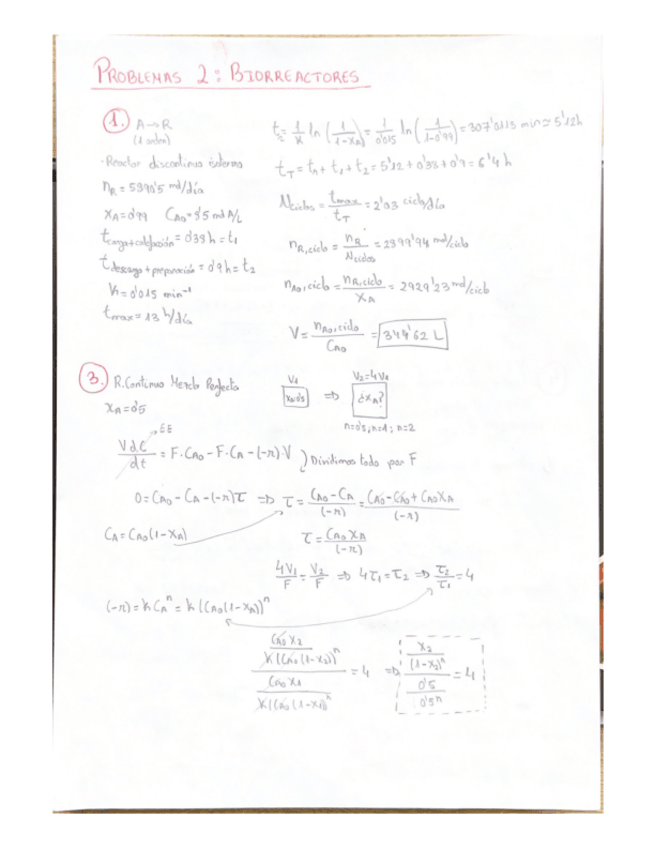 PROBLEMAS 2: BIORREACTORES
1. A→R
(1 orden)
·Reactor discontinuo isotermo
nR = 5390'5 mol/día
XA=0'99 CA0=8'5 mol A/L
tcarga+calefacción = 0'38 h = t1
tdescarga+preparación = 0'9 h = t2
k=0'015 min⁻¹
tmax = 13 h/día
tR= 1/k ln (1/(1-XA)) = 1/0'015 ln (1/(1-0'99)) = 307'0113 min ≃ 5'12h
tT = tR + t1 + t2 = 5'12 + 0'38 + 0'9 = 6'4 h
Nciclos = tmax/tT = 2'03 ciclo/día
nR,ciclo = nR/Nciclos = 2899'94 mol/ciclo
nA0,ciclo = nR,ciclo/XA = 2929'23 mol/ciclo
V = nA0,ciclo/CA0 = 344'62 L
3. R. Continuo Mezcla Perfecta
XA=0'5
V1
XA=0'5
⇒
V2=4V1
¿XA?
n=0'5; n=1; n=2
→EE
V dC/dt = F·CA0 - F·CA - (-r)·V ) Dividimos todo por F
0 = CA0 - CA - (-r)τ ⇒ τ = (CA0 - CA)/(-r) = (CA0 - CA0 + CA0XA)/(-r)
CA = CA0(1-XA)
τ = CA0XA/(-r)
4V1/F = V2/F ⇒ 4τ1 = τ2 ⇒ τ2/τ1 = 4
(-r) = k CAⁿ = k ((CA0(1-XA))ⁿ
(CA0 X2 / k((CA0(1-X2))ⁿ) / (CA0 X1 / k((CA0(1-X1))ⁿ) = 4 ⇒ (X2/(1-X2)ⁿ) / (0'5/0'5ⁿ) = 4